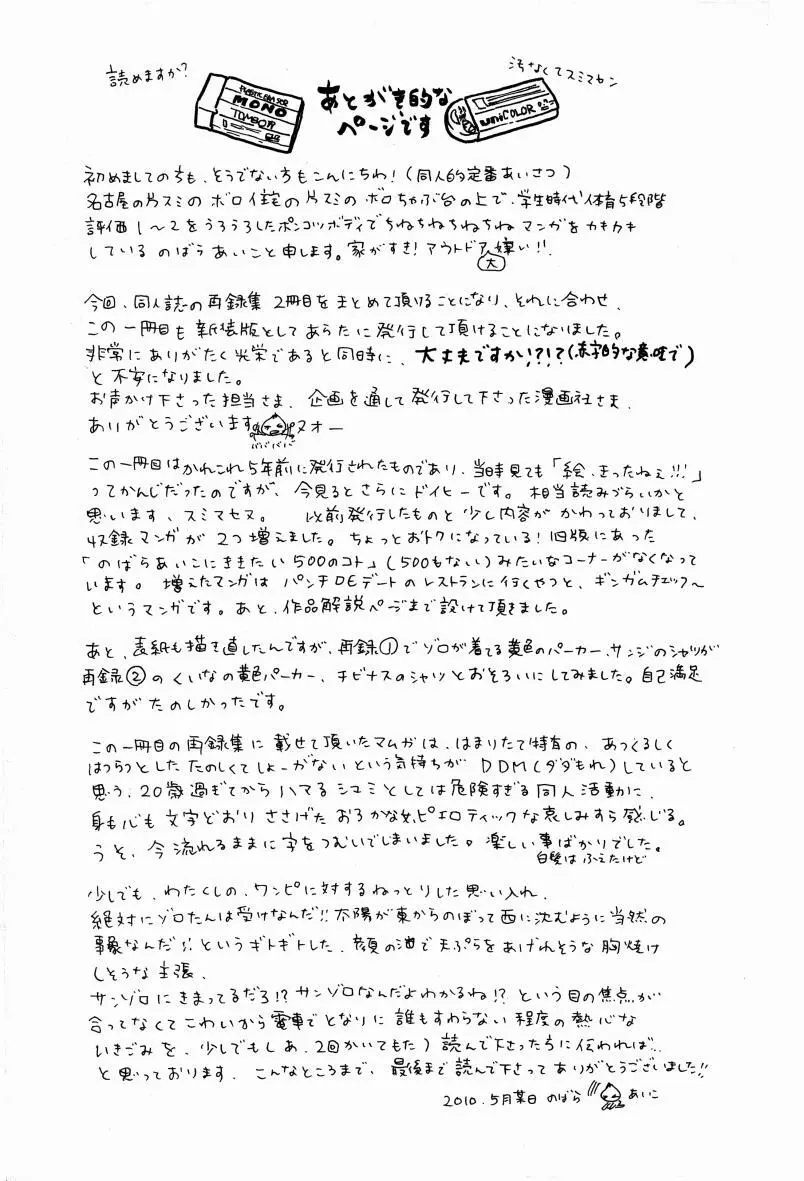 読めますか?
汚なくてスミマセン
PLASTIC ERASER
MONO
TOMBOW
あとがき的な
ページです
uni COLOR
初めましての方も、そうでない方もこんにちわ!(同人的定番あいさつ)
名古屋の片スミの ボロ住宅の片スミの ボロちゃぶ台の上で、学生時代体育5段階
評価1〜2をうろうろしたポンコツボディでちねちねちねちね マンガをカキカキ
している のばらあいこと申します。家がすき!アウトドア大嫌い!!
今回、同人誌の再録集 2冊目をまとめて頂けることになり、それに合わせ、
この一冊目も新装版としてあらたに発行して頂けることになりました。
非常にありがたく光栄であると同時に、大丈夫ですか!?!?(赤字的な意味で)
と不安になりました。
お声かけ下さった担当さま、企画を通して発行して下さった漫画社さま、
ありがとうございます ヌオー
この一冊目はかれこれ5年前に発行されたものであり、当時見ても「絵、きったねぇ!!!」
ってかんじだったのですが、今見るとさらにドイヒーです。相当読みづらいかと
思います、スミマセヌ。 以前発行したものと少し内容がかわっておりまして、
収録マンガが2つ増えました。ちょっとおトクになっている!旧版にあった
「のばらあいこにききたい500のコト」(500もない)みたいなコーナーがなくなって
います。増えたマンガは パンチDEデートのレストランに行くやつと、ギンガムチェック〜
というマンガです。あと、作品解説ページまで設けて頂きました。
あと、表紙も描き直したんですが、再録①でゾロが着てる黄色のパーカー、サンジのシャツが
再録②のくいなの黄色パーカー、チビナスのシャツとおそろいにしてみました。自己満足
ですがたのしかったです。
この一冊目の再録集に載せて頂いたマムガは、はまりたて特有の、あつくるしく
はつらつとした たのしくてしょーがないという気持ちが DDM(ダダもれ)していると
思う、20歳過ぎてからハマるシュミとしては危険すぎる同人活動に、
身も心も文字どおりささげた おろかな女、ピエロティックな哀しみすら感じる。
うそ、今流れるままに字をつむいでしまいました。楽しい事ばかりでした。
白髪はふえたけど
少しでも、わたくしの、ワンピに対するねっとりした思い入れ、
絶対にゾロたんは受けなんだ!!太陽が東からのぼって西に沈むように当然の
事象なんだ!!というギトギトした、顔の油で天ぷらをあげれそうな胸焼け
しそうな主張、
サンゾロにきまってるだろ!?サンゾロなんだよわかるね!?という目の焦点が
合ってなくてこわいから電車でとなりに誰もすわらない程度の熱心な
いきごみを、少しでも(あ、2回かいてもた)読んで下さった方に伝われば…
と思っております、こんなところまで、最後まで読んで下さってありがとうございました!!
2010.5月某日 のばら あいこ